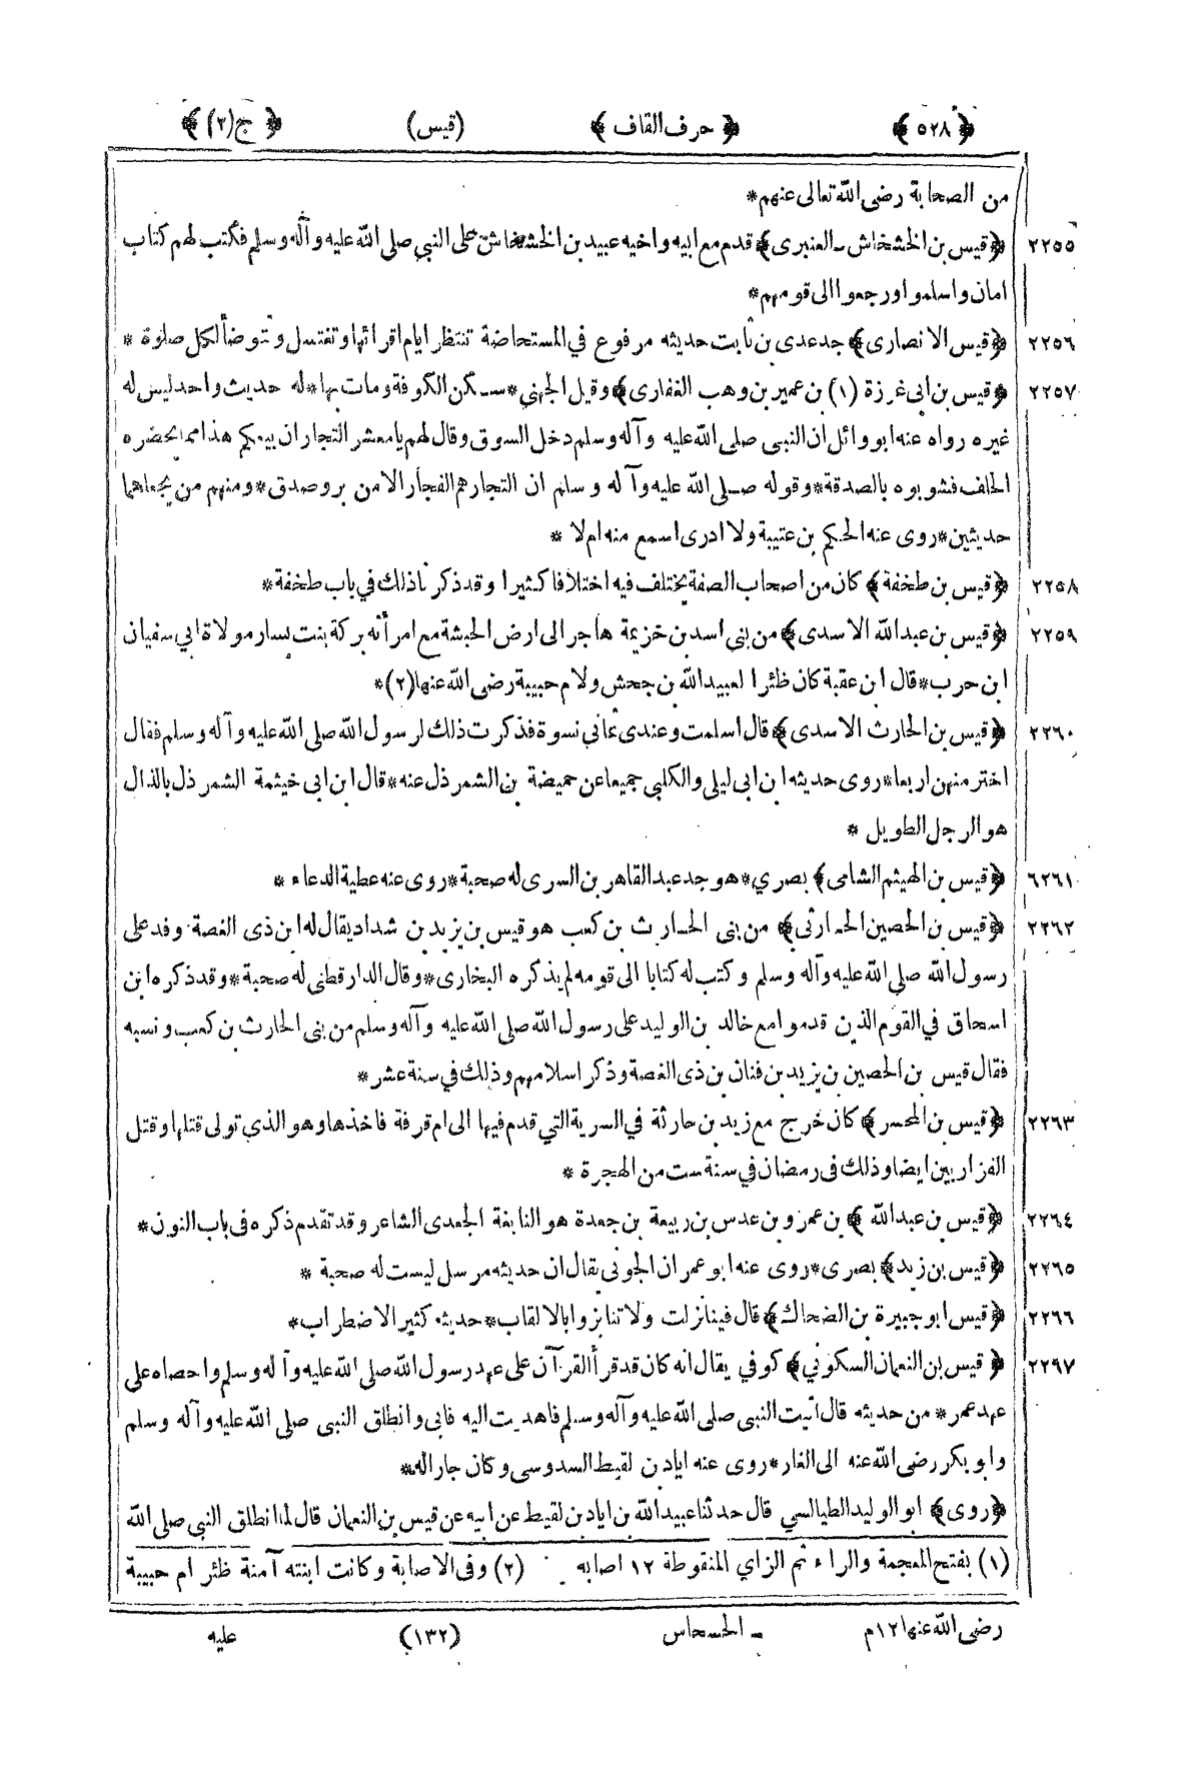 ﴿ ٥٢٨ ﴾ ﴿ حرف القاف ﴾ (قيس) ﴿ ج(٢) ﴾
من الصحابة رضى الله تعالى عنهم*
٢٢٥٥ ﴿قيس بن الخشخاش - العنبرى﴾ قدم مع ابيه واخيه عبيد بن الخشخاش على النبي صلى الله عليه وآله وسلم فكتب لهم كتاب
امان واسلموا ورجعوا الى قومهم*
٢٢٥٦ ﴿قيس الانصارى﴾ جد عدى بن ثابت حديثه مرفوع في المستحاضة تنتظر ايام اقرائها وتغتسل وتتوضأ لكل صلوة *
٢٢٥٧ ﴿قيس بن ابى غرزة (١) بن عمير بن وهب الغفارى﴾ وقيل الجهني* سكن الكوفة ومات بها* له حديث واحد ليس له
غيره رواه عنه ابو وائل ان النبى صلى الله عليه وآله وسلم دخل السوق وقال لهم يا معشر التجار ان بيعكم هذا مما يحضره
الحلف فشوبوه بالصدقة* وقوله صلى الله عليه وآله وسلم ان التجار هم الفجار الا من بر وصدق* ومنهم من يجعلهما
حديثين* روى عنه الحكم بن عتيبة ولا ادرى اسمع منه ام لا *
٢٢٥٨ ﴿قيس بن طخفة﴾ كان من اصحاب الصفة يختلف فيه اختلافا كثيرا وقد ذكرنا ذلك في باب طخفة*
٢٢٥٩ ﴿قيس بن عبد الله الاسدى﴾ من بنى اسد بن خزيمة هاجر الى ارض الحبشة مع امرأته بركة بنت يسار مولاة ابي سفيان
ابن حرب* قال ابن عقبة كان ظئرا لعبيد الله بن جحش ولام حبيبة رضى الله عنها (٢)*
٢٢٦٠ ﴿قيس بن الحارث الاسدى﴾ قال اسلمت وعندى ثمانى نسوة فذكرت ذلك لرسول الله صلى الله عليه وآله وسلم فقال
اختر منهن اربعا* روى حديثه ابن ابى ليلى والكلبي جميعا عن حميضة بن الشمرذل عنه* قال ابن ابى خيثمة الشمرذل بالذال
هو الرجل الطويل *
٦٢٦١ ﴿قيس بن الهيثم الشامى﴾ بصري* هو جد عبد القاهر بن السرى له صحبة* روى عنه عطية الدعاء *
٢٢٦٢ ﴿قيس بن الحصين الحارثى﴾ من بنى الحارث بن كعب هو قيس بن يزيد بن شداد يقال له ابن ذى الغصة وفد على
رسول الله صلى الله عليه وآله وسلم وكتب له كتابا الى قومه لم يذكره البخارى* وقال الدارقطنى له صحبة* وقد ذكره ابن
اسحاق في القوم الذين قدموا مع خالد بن الوليد على رسول الله صلى الله عليه وآله وسلم من بنى الحارث بن كعب ونسبه
فقال قيس بن الحصين بن يزيد بن قنان بن ذى الغصة وذكر اسلامهم وذلك في سنة عشر*
٢٢٦٣ ﴿قيس بن المحسر﴾ كان خرج مع زيد بن حارثة في السرية التي قدم فيها الى ام قرفة فاخذها وهو الذي تولى قتلها وقتل
الفزاريين ايضا وذلك فى رمضان في سنة ست من الهجرة *
٢٢٦٤ ﴿قيس بن عبد الله ﴾ بن عمرو بن عدس بن ربيعة بن جعدة هو النابغة الجعدى الشاعر وقد تقدم ذكره فى باب النون*
٢٢٦٥ ﴿قيس بن زيد﴾ بصرى* روى عنه ابو عمران الجونى يقال ان حديثه مرسل ليست له صحبة *
٢٢٦٦ ﴿قيس ابو جبيرة بن الضحاك﴾ قال فينا نزلت ولا تنابزوا بالالقاب* حديثه كثير الاضطراب*
٢٢٩٧ ﴿قيس بن النعمان السكوني﴾ كوفي يقال انه كان قد قرأ القرآن على عهد رسول الله صلى الله عليه وآله وسلم واحصاه على
عهد عمر* من حديثه قال أتيت النبى صلى الله عليه وآله وسلم فاهديت اليه فابى وانطلق النبى صلى الله عليه وآله وسلم
وابو بكر رضى الله عنه الى الغار* روى عنه اياد بن لقيط السدوسى وكان جارا له*
﴿روى﴾ ابو الوليد الطيالسي قال حدثنا عبيد الله بن اياد بن لقيط عن ابيه عن قيس بن النعمان قال لما انطلق النبى صلى الله
(١) بفتح المعجمة والراء ثم الزاي المنقوطة ١٢ اصابه (٢) وفى الاصابة وكانت ابنته آمنة ظئر ام حبيبة
رضى الله عنها ١٢ م - الحسحاس (١٣٢) عليه